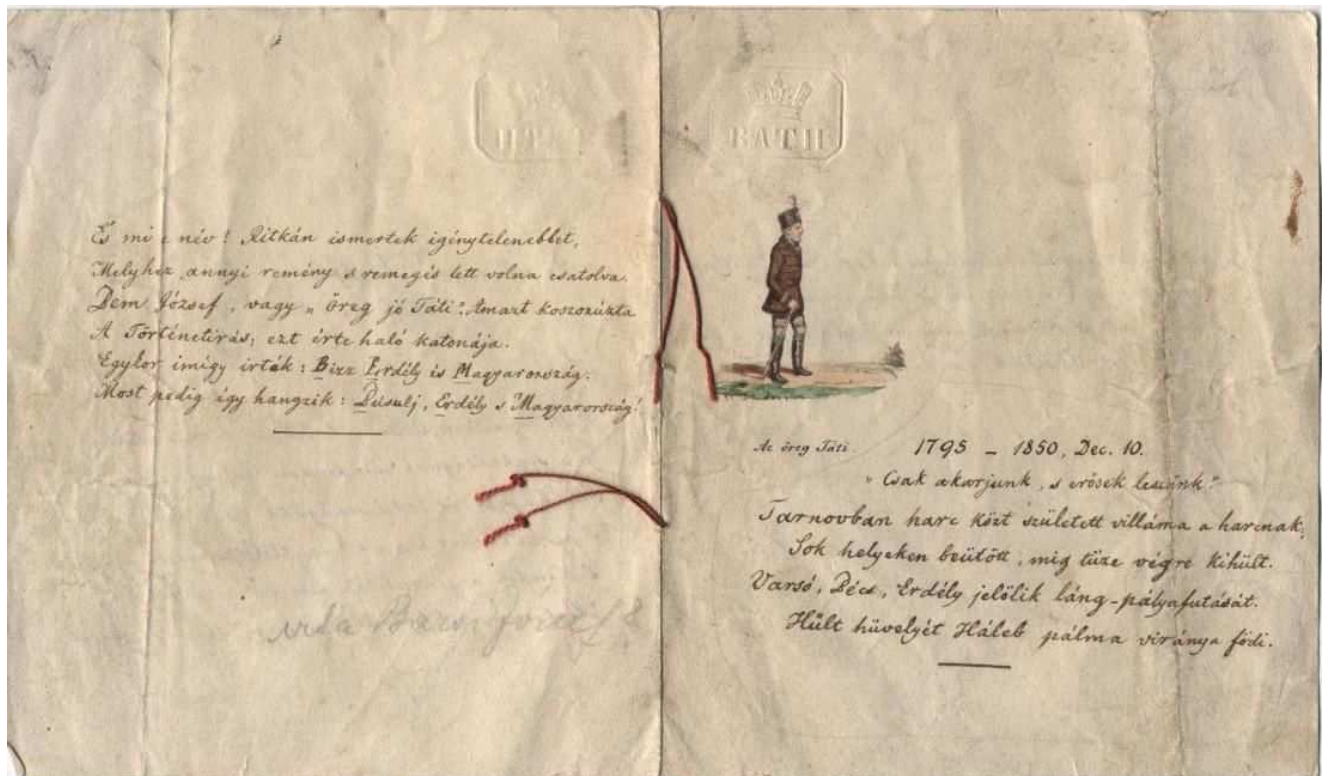 RATH
És mi e név! Ritkán ismertek igénytelenebbet,
Melyhez annyi remény s remegés lett volna csatolva.
Bem József, vagy „öreg jó Táti". Amazt koszorúzta
A Történetirás, ezt érte haló katonája.
Egykor imígy irták: Bizz Erdély és Magyarország.
Most pedig így hangzik: Búsulj, Erdély s Magyarország!
RATH
Az öreg Táti. 1795 – 1850, Dec. 10.
„Csak akarjunk, s erősek leszünk"
Tarnovban harc közt született villáma a harcnak;
Sok helyeken beütött, mig tüze végre kihült.
Varsó, Bécs, Erdély jelölik láng-pályafutását.
Hült hüvelyét Háleb pálma viránya födi.